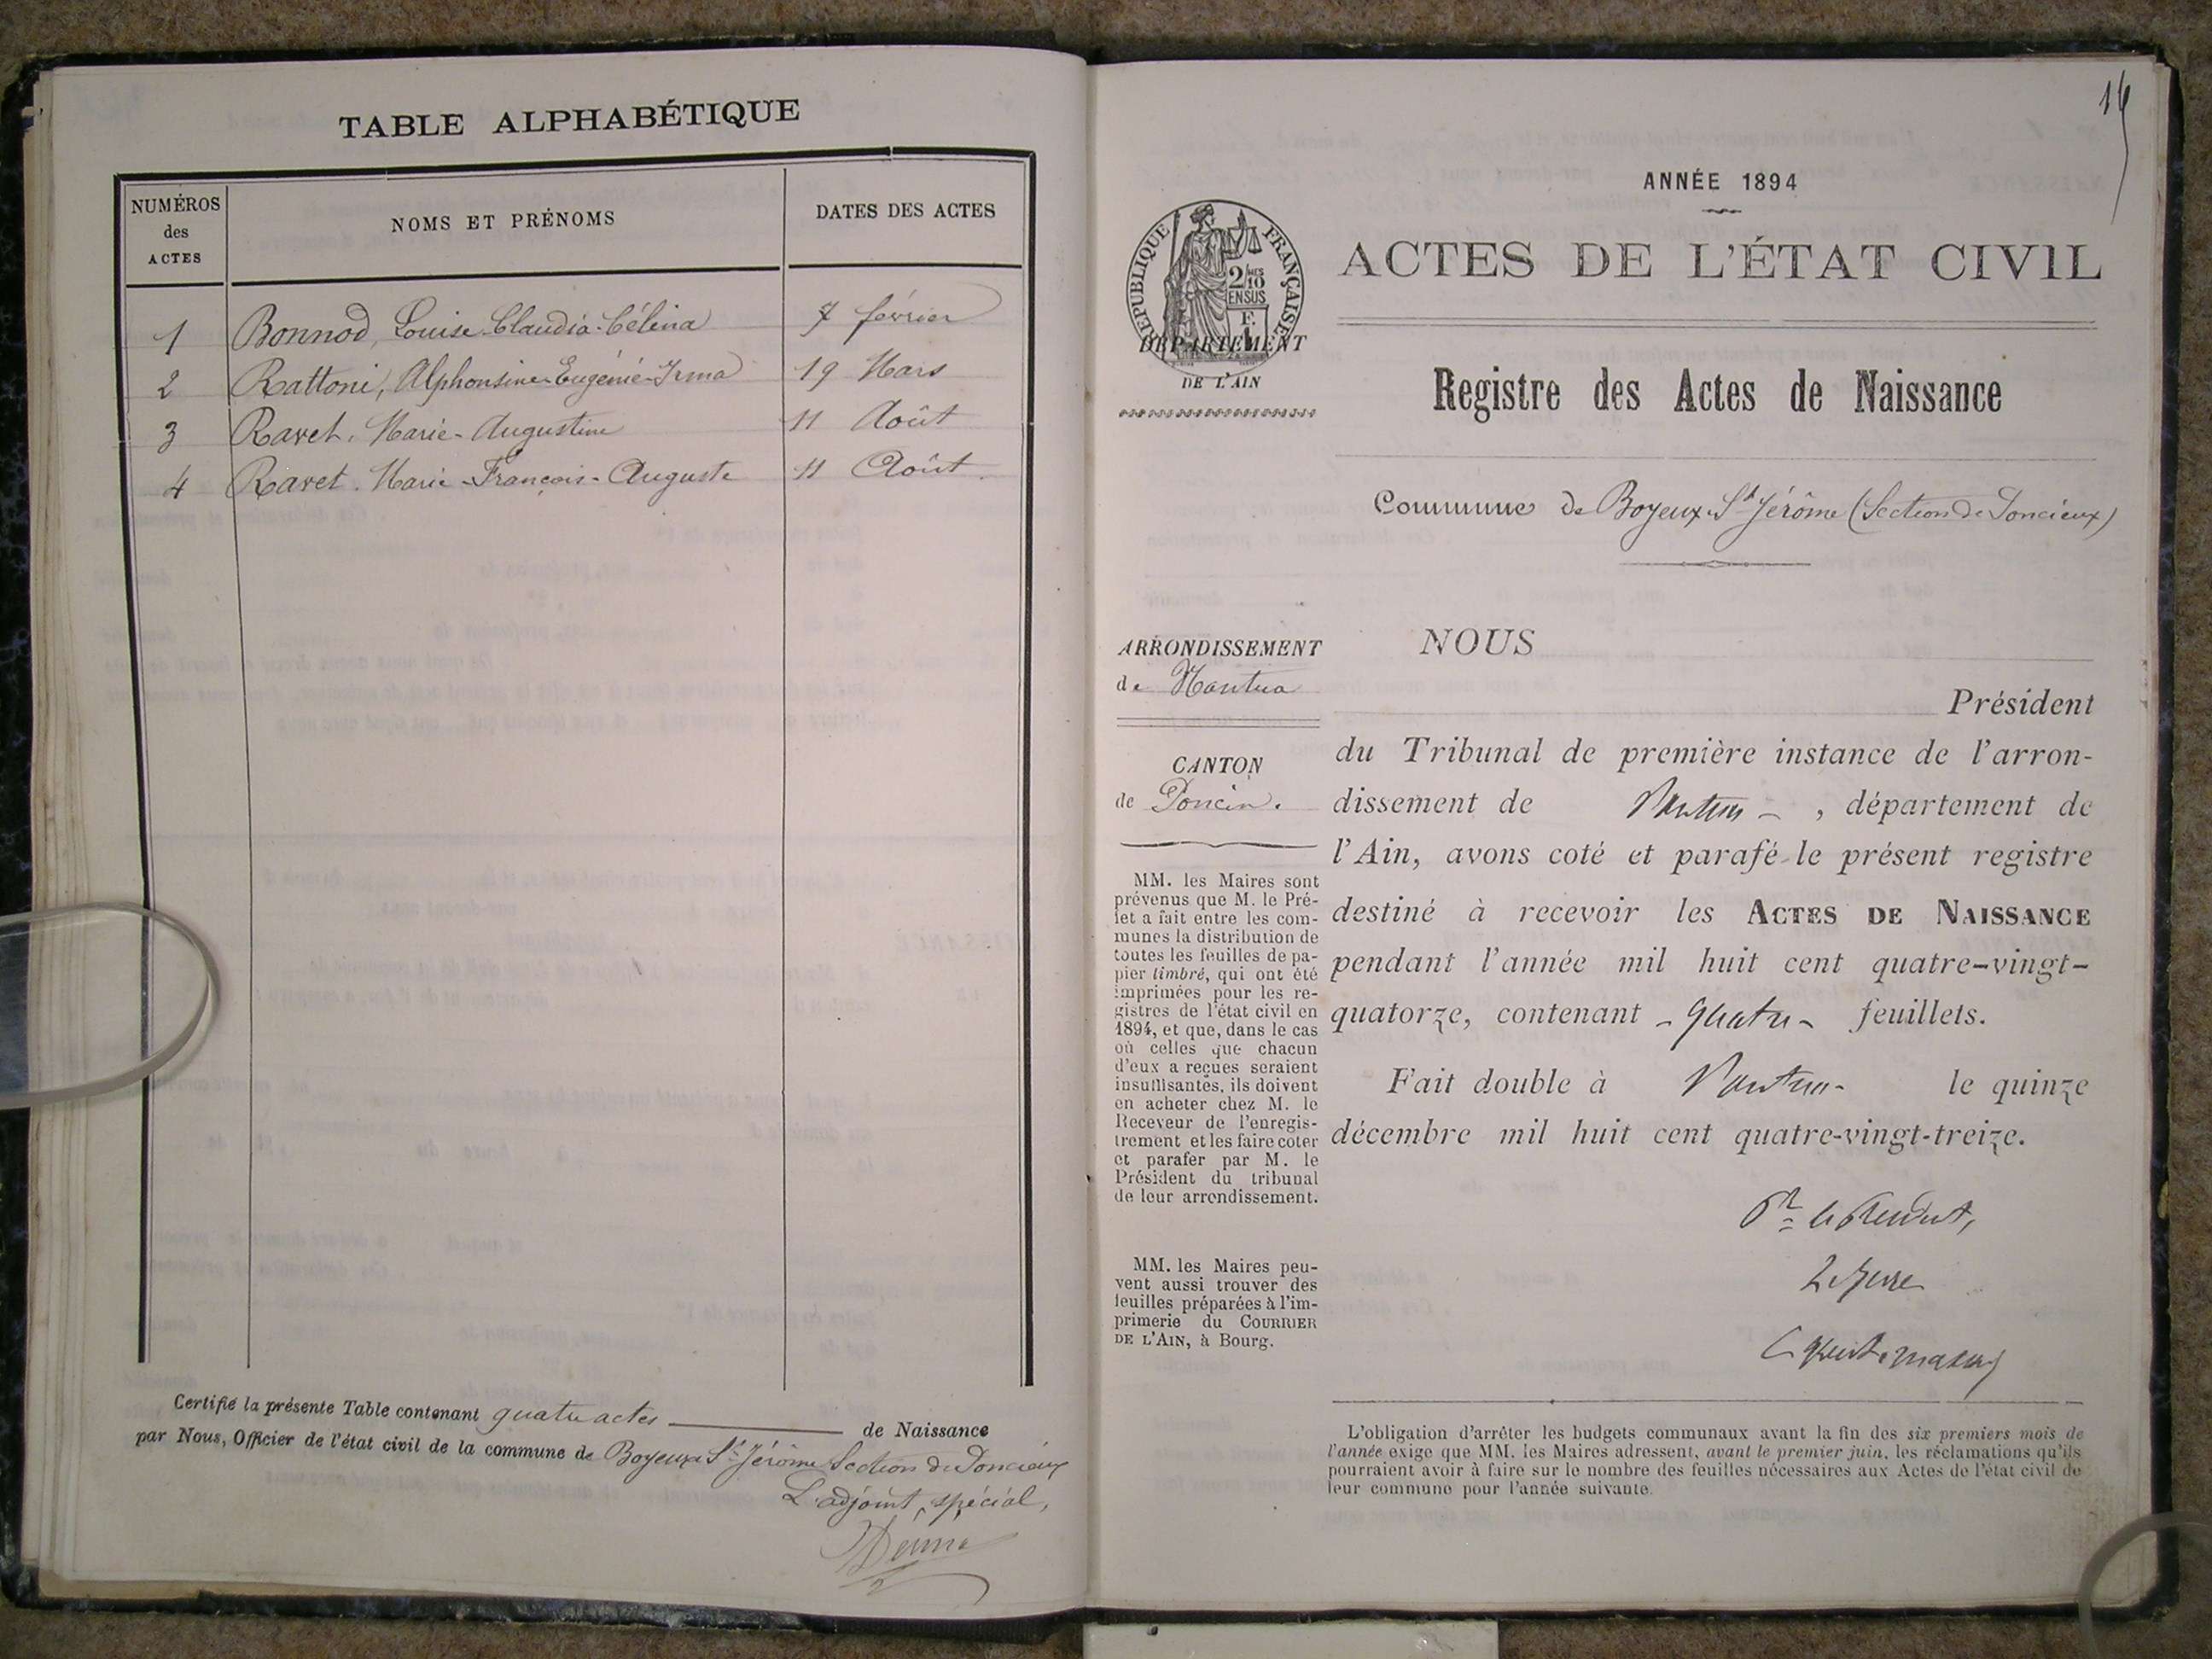 TABLE ALPHABÉTIQUE
NUMÉROS des ACTES
NOMS ET PRÉNOMS
DATES DES ACTES
1 Bonnod, Louise-Claudia-Célina 7 février
2 Rattoni, Alphonsine-Eugénie-Irma 19 Mars
3 Ravet, Marie-Augustine 11 Août
4 Ravet. Marie-François-Auguste 11 Août
Certifié la présente Table contenant quatre actes de Naissance
par Nous, Officier de l'état civil de la commune de Boyeux St Jérôme Section de Poncieux
L'adjoint spécial,
ANNÉE 1894
RÉPUBLIQUE FRANÇAISE
2/10 EN SUS
DÉPARTEMENT
DE L'AIN
ACTES DE L'ÉTAT CIVIL
Registre des Actes de Naissance
Commune de Boyeux-St Jérôme (Section de Poncieux)
ARRONDISSEMENT
de Nantua
CANTON
de Poncin.
MM. les Maires sont
prévenus que M. le Pré-
fet a fait entre les com-
munes la distribution de
toutes les feuilles de pa-
pier timbré, qui ont été
imprimées pour les re-
gistres de l'état civil en
1894, et que, dans le cas
où celles que chacun
d'eux a reçues seraient
insuffisantes, ils doivent
en acheter chez M. le
Receveur de l'enregis-
trement et les faire coter
et parafer par M. le
Président du tribunal
de leur arrondissement.
MM. les Maires peu-
vent aussi trouver des
feuilles préparées à l'im-
primerie du COURRIER
DE L'AIN, à Bourg.
NOUS
Président
du Tribunal de première instance de l'arron-
dissement de Nantua , département de
l'Ain, avons coté et parafé le présent registre
destiné à recevoir les ACTES DE NAISSANCE
pendant l'année mil huit cent quatre-vingt-
quatorze, contenant - quatre - feuillets.
Fait double à Nantua le quinze
décembre mil huit cent quatre-vingt-treize.
Pr le Président,
Le Juge
L'obligation d'arrêter les budgets communaux avant la fin des six premiers mois de
l'année exige que MM. les Maires adressent, avant le premier juin, les réclamations qu'ils
pourraient avoir à faire sur le nombre des feuilles nécessaires aux Actes de l'état civil de
leur commune pour l'année suivante.